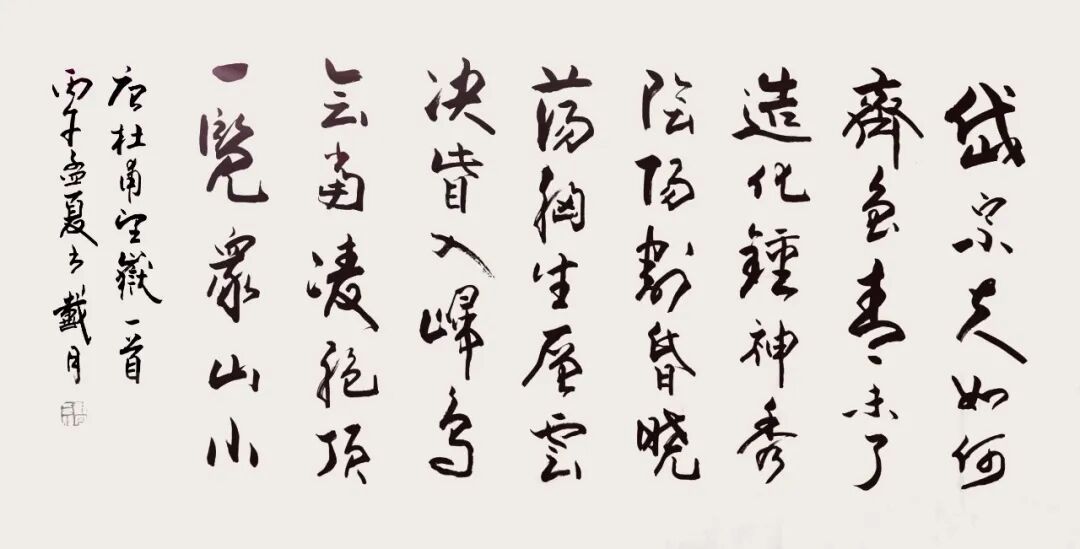 岱宗夫如何
齊魯青未了
造化鍾神秀
陰陽割昏曉
蕩胸生層雲
决眥入歸鳥
會當凌絶頂
一覽衆山小
唐杜甫望嶽一首
丙午孟夏书戴月